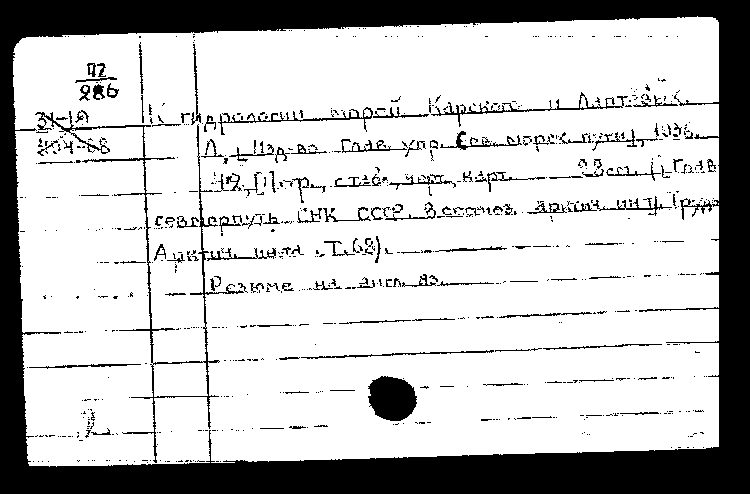 П2
286
31-19
К гидрологии морей Карского и Лаптевых.
Л., [Изд-во Глав. упр. Сев. морск. пути], 1936.
[1] стр., табл., черт., карт. 28 см. ([Глав
севморпуть СНК СССР. Всесоюз. арктич. инт]. Труды
Арктич. инта. Т.68).
Резюме на англ. яз.